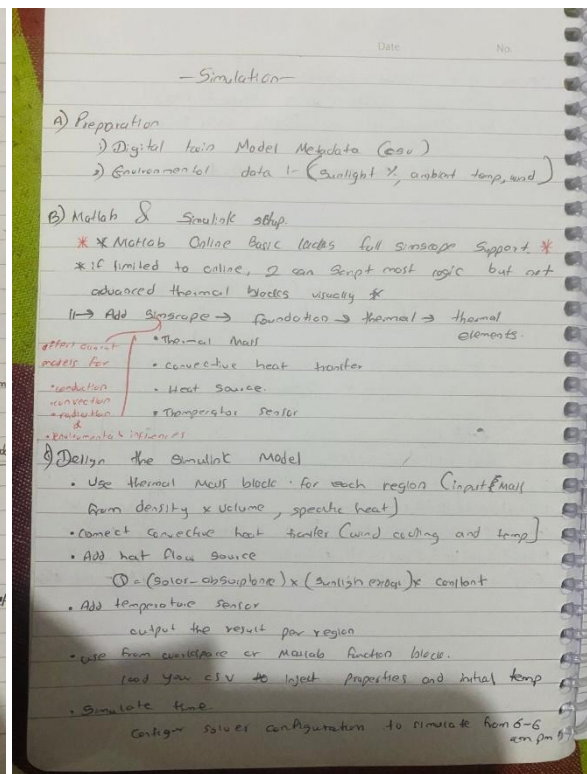 Date
No.
- Simulation -
A) Preparation
1) Digital twin Model Metadata (csv)
2) Environmental data :- (Sunlight %, ambient temp, wind)
B) Matlab & Simulink setup.
* * Matlab Online Basic lacks full simscape Support. *
* if limited to online, I can Script most logic but not
advanced thermal blocks visually *
|→ Add Simscape → foundation → thermal → thermal
elements.
• Thermal Mass
models for
• convective heat transfer
• conduction
• convection
• Heat source.
• radiation
&
• Themperator sensor
• environmental influences
C) Design the simulink Model
• Use thermal Mass block for each region (input Mass
from density x volume, specific heat)
• connect convective heat transfer (wind cooling and temp)
• Add hat flow source
Q = (solar-absorptance) x (sunligh) x constant
• Add temperature sensor
output the result per region
• use from workspace or Matlab function block.
load you csv to inject properties and initial temp
• Simulate time
Configer solver configuration to simulate from 6-6
am pm